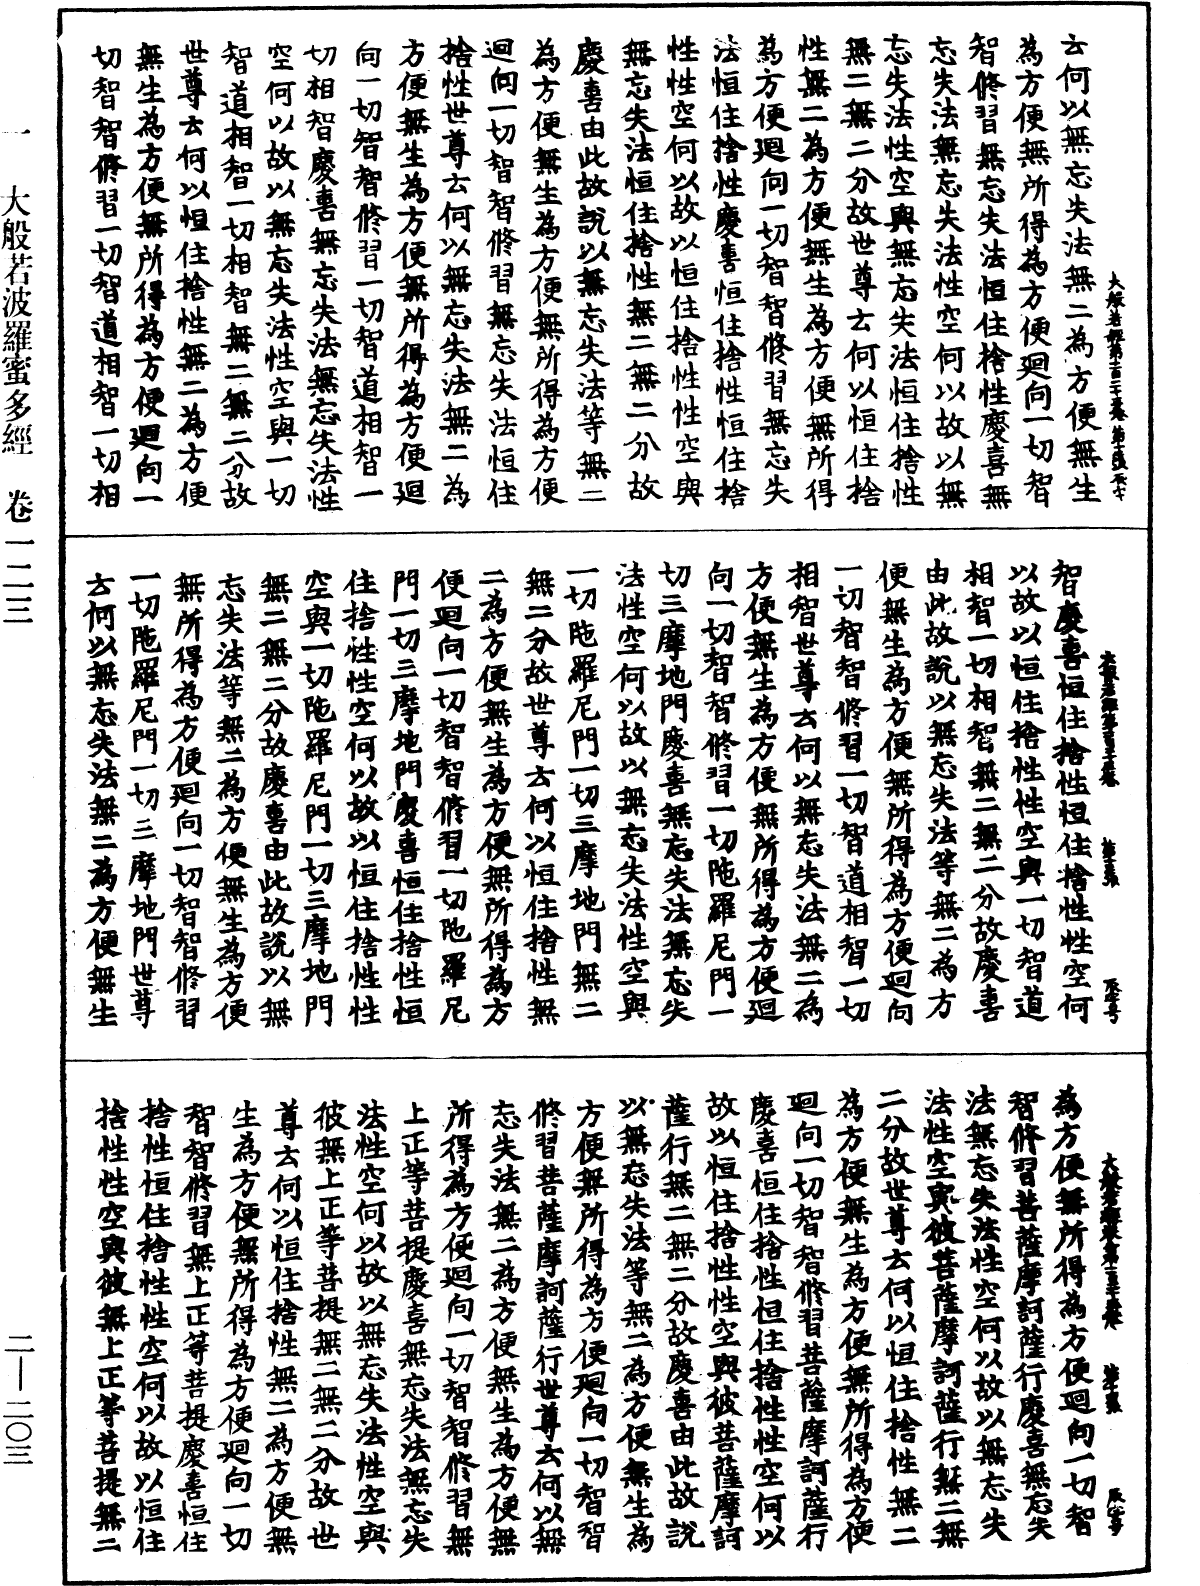 云何以無忘失法無二為方便無生
為方便無所得為方便迴向一切智
智修習無忘失法恒住捨性慶喜無
忘失法無忘失法性空何以故以無
忘失法性空與無忘失法恒住捨性
無二無二分故世尊云何以恒住捨
性無二為方便無生為方便無所得
為方便迴向一切智智修習無忘失
法恒住捨性慶喜恒住捨性恒住捨
性性空何以故以恒住捨性性空與
無忘失法恒住捨性無二無二分故
慶喜由此故說以無忘失法等無二
為方便無生為方便無所得為方便
迴向一切智智修習無忘失法恒住
捨性世尊云何以無忘失法無二為
方便無生為方便無所得為方便迴
向一切智智修習一切智道相智一
切相智慶喜無忘失法無忘失法性
空何以故以無忘失法性空與一切
智道相智一切相智無二無二分故
世尊云何以恒住捨性無二為方便
無生為方便無所得為方便迴向一
切智智修習一切智道相智一切相
智慶喜恒住捨性恒住捨性性空何
以故以恒住捨性性空與一切智道
相智一切相智無二無二分故慶喜
由此故說以無忘失法等無二為方
便無生為方便無所得為方便迴向
一切智智修習一切智道相智一切
相智世尊云何以無忘失法無二為
方便無生為方便無所得為方便迴
向一切智智修習一切陁羅尼門一
切三摩地門慶喜無忘失法無忘失
法性空何以故以無忘失法性空與
一切陁羅尼門一切三摩地門無二
無二分故世尊云何以恒住捨性無
二為方便無生為方便無所得為方
便迴向一切智智修習一切陁羅尼
門一切三摩地門慶喜恒住捨性恒
住捨性性空何以故以恒住捨性性
空與一切陁羅尼門一切三摩地門
無二無二分故慶喜由此故說以無
忘失法等無二為方便無生為方便
無所得為方便迴向一切智智修習
一切陁羅尼門一切三摩地門世尊
云何以無忘失法無二為方便無生
為方便無所得為方便迴向一切智
智修習菩薩摩訶薩行慶喜無忘失
法無忘失法性空何以故以無忘失
法性空與彼菩薩摩訶薩行無二無
二分故世尊云何以恒住捨性無二
為方便無生為方便無所得為方便
迴向一切智智修習菩薩摩訶薩行
慶喜恒住捨性恒住捨性性空何以
故以恒住捨性性空與彼菩薩摩訶
薩行無二無二分故慶喜由此故說
以無忘失法等無二為方便無生為
方便無所得為方便迴向一切智智
修習菩薩摩訶薩行世尊云何以無
忘失法無二為方便無生為方便無
所得為方便迴向一切智智修習無
上正等菩提慶喜無忘失法無忘失
法性空何以故以無忘失法性空與
彼無上正等菩提無二無二分故世
尊云何以恒住捨性無二為方便無
生為方便無所得為方便迴向一切
智智修習無上正等菩提慶喜恒住
捨性恒住捨性性空何以故以恒住
捨性性空與彼無上正等菩提無二
一 大般若波羅蜜多經 卷一二三
二—二〇三